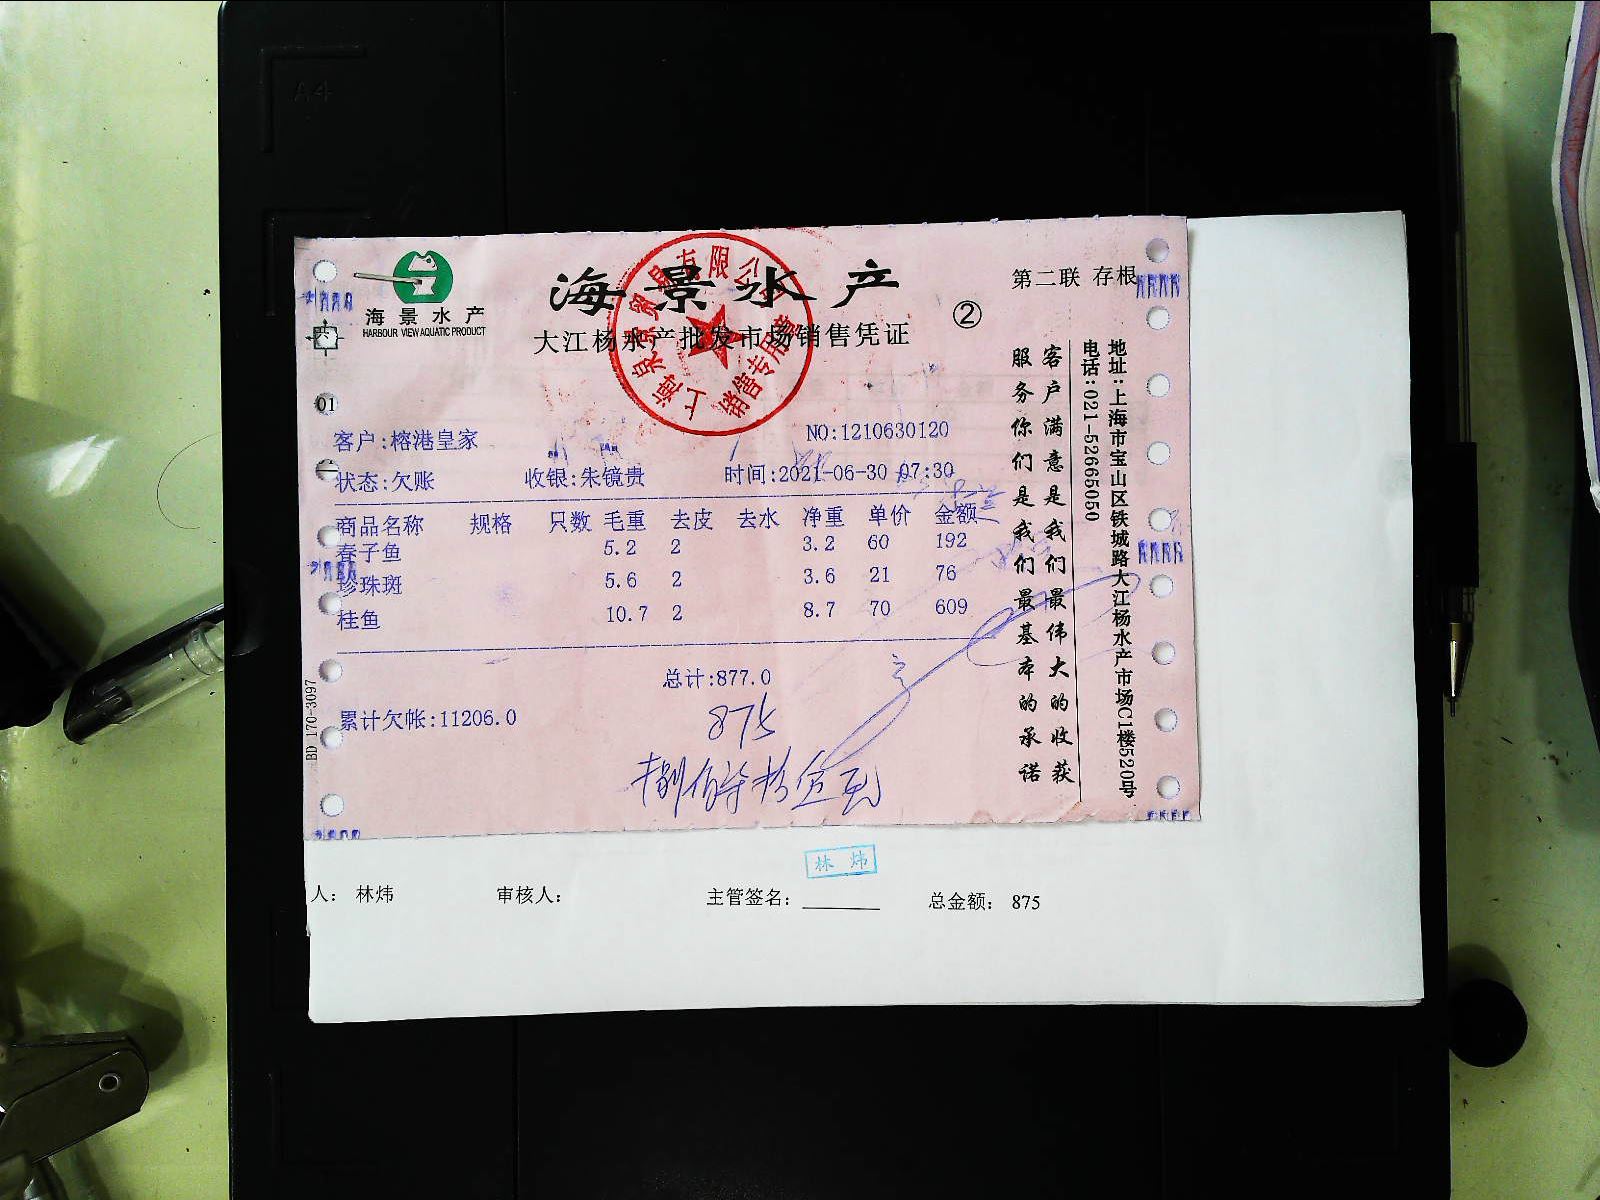 A4
海景水产
HARBOUR VIEW AQUATIC PRODUCT
海景水产
大江杨水产批发市场销售凭证
②
第二联 存根
01
客户:榕港皇家
NO:1210630120
状态:欠账 收银:朱镜贵 时间:2021-06-30 07:30
商品名称 规格 只数 毛重 去皮 去水 净重 单价 金额
春子鱼 5.2 2 3.2 60 192
珍珠斑 5.6 2 3.6 21 76
桂鱼 10.7 2 8.7 70 609
总计:877.0
累计欠帐:11206.0
875
捌佰柒拾伍元
BD 170-3097
客户满意是我们最伟大的收获
服务你们是我们最基本的承诺
地址:上海市宝山区铁城路大江杨水产市场C1楼520号
电话:021-52665050
销售专用章
林炜
人: 林炜 审核人: 主管签名: 总金额: 875